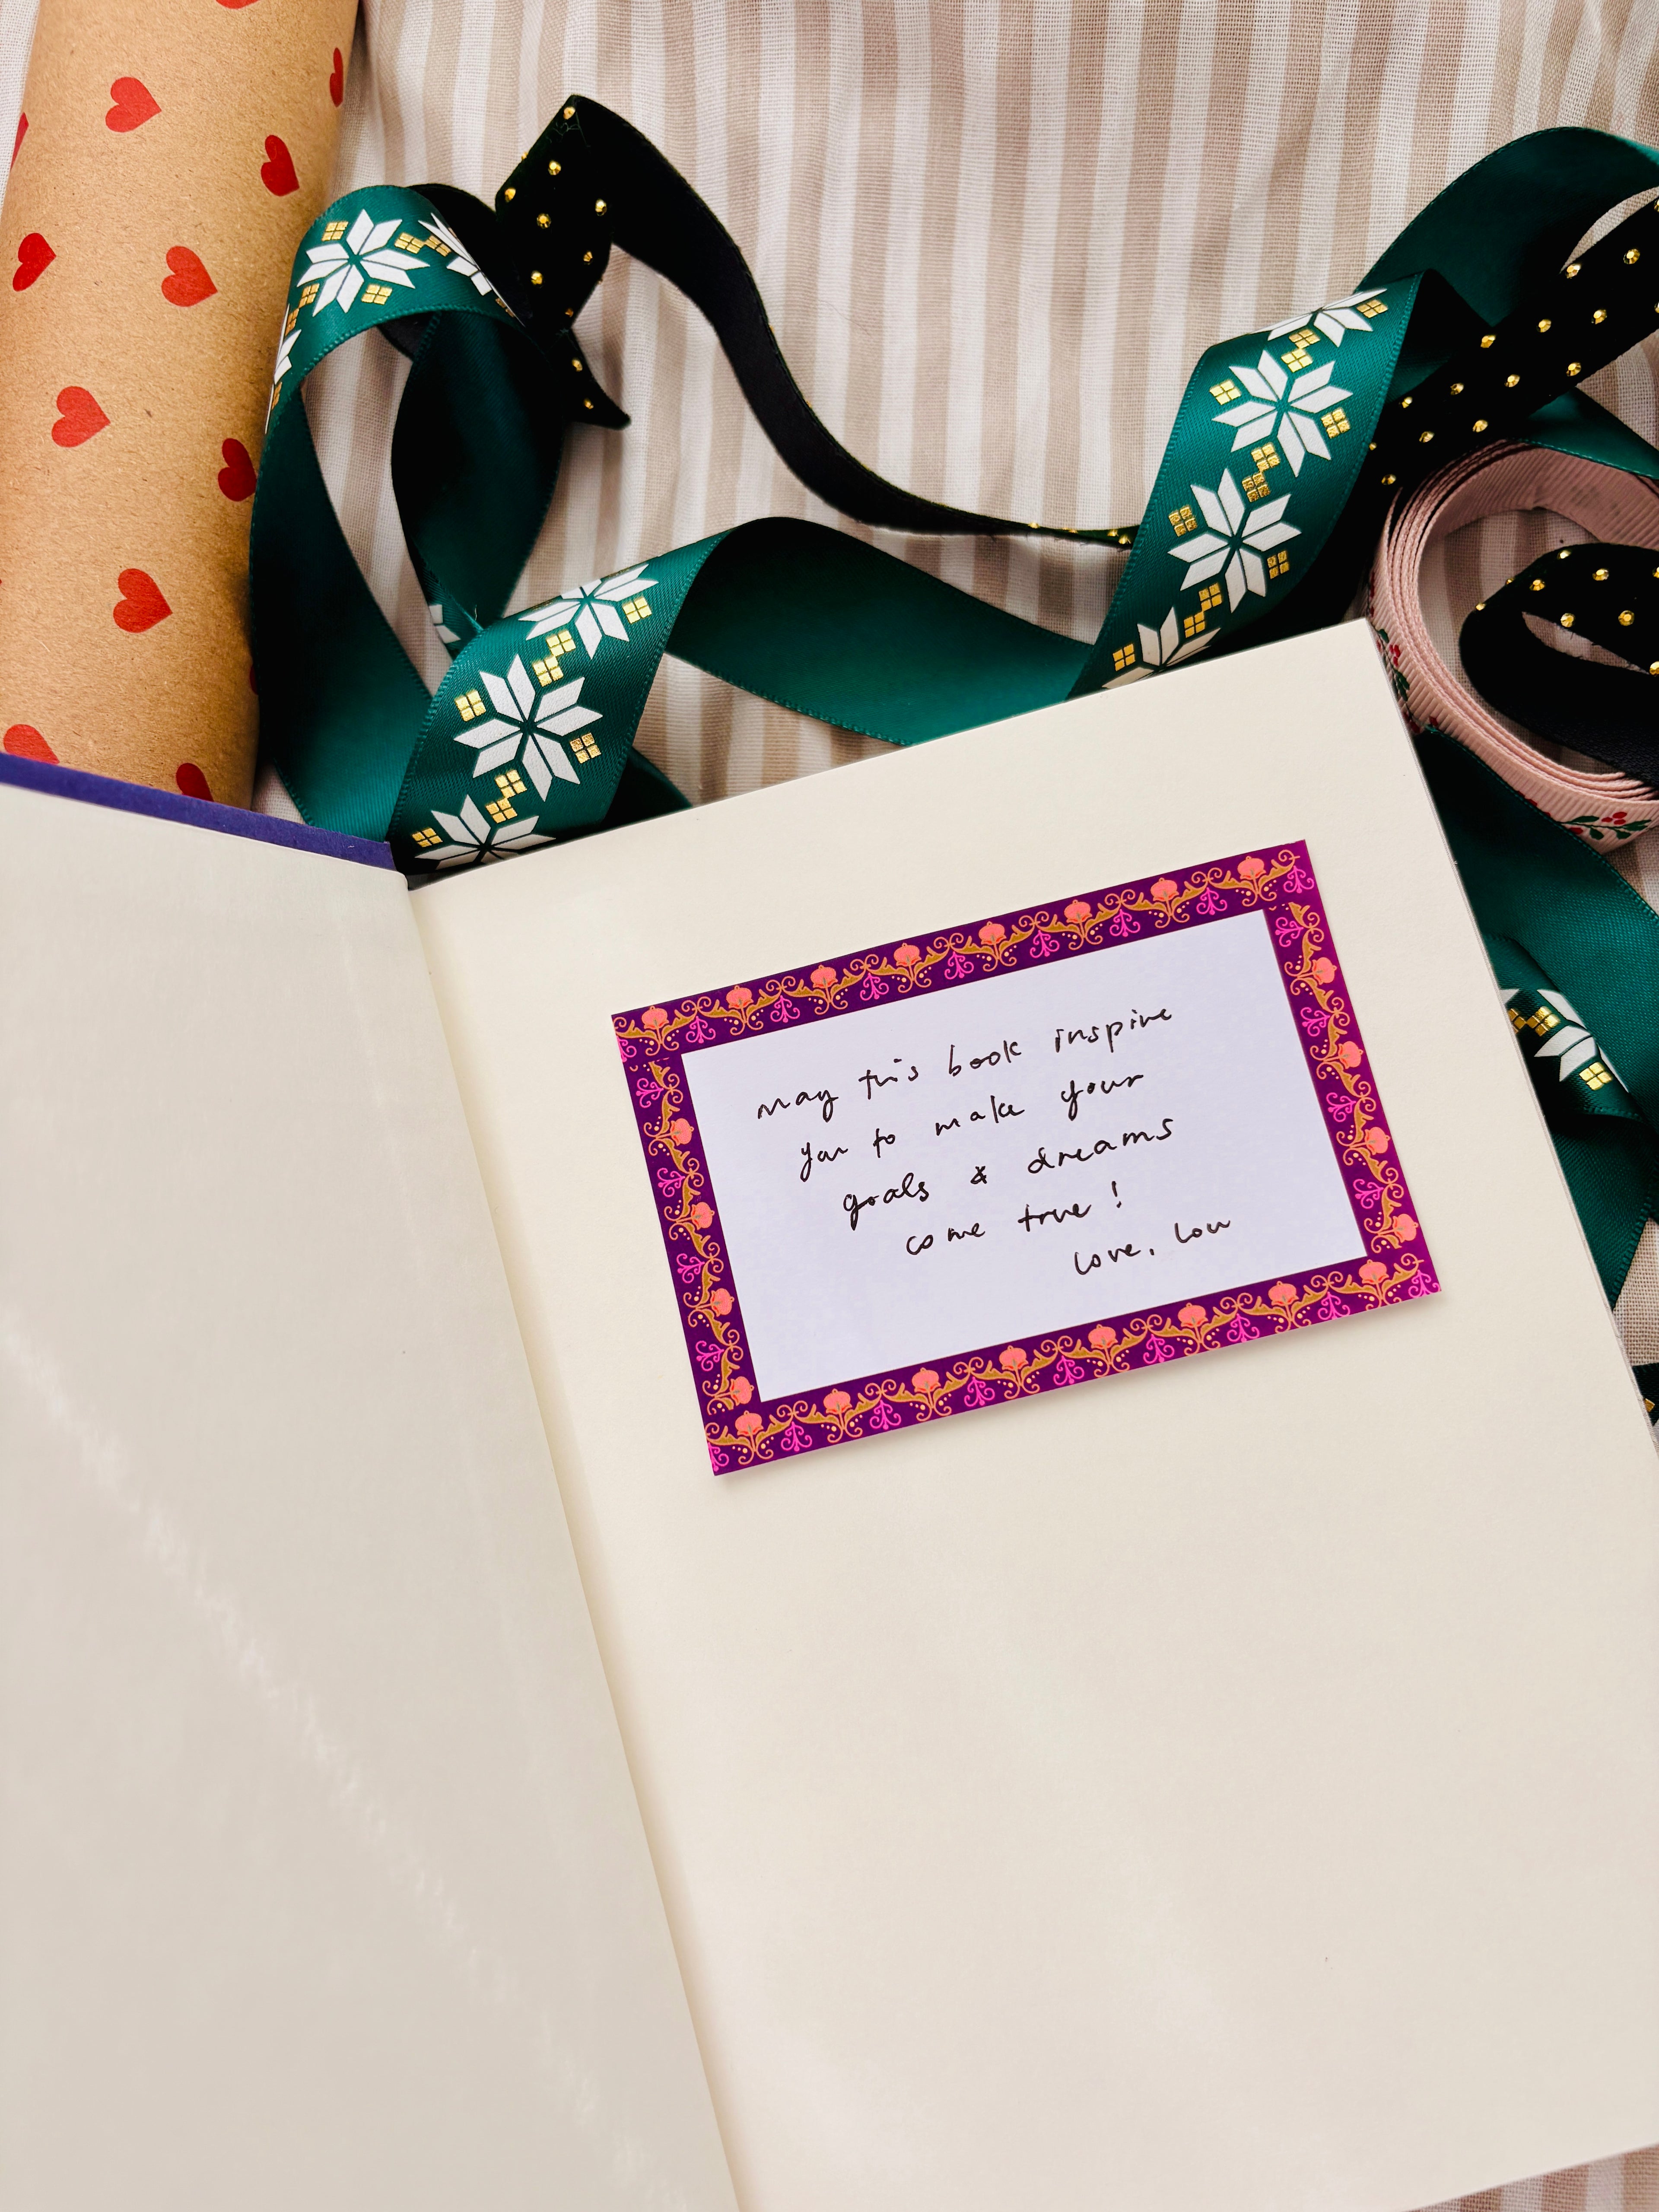 may this book inspire
you to make your
goals & dreams
come true!
love, Lou